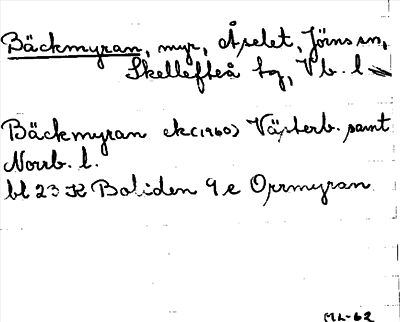 Bäckmyran, myr, Åselet, Jörns sn,
Skellefteå tg, Vb. l.
Bäckmyran ek (1960) Västerb. samt
Norrb. l.
bl 23 K Boliden 9e Orrmyran
ML-62